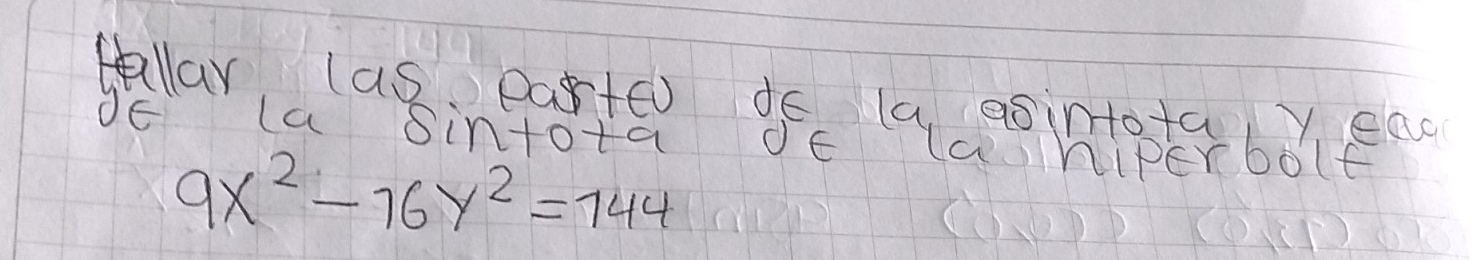 Hallar las partes de la asintota, y
de la sintota de la hiperbole
9x² - 16y² = 144